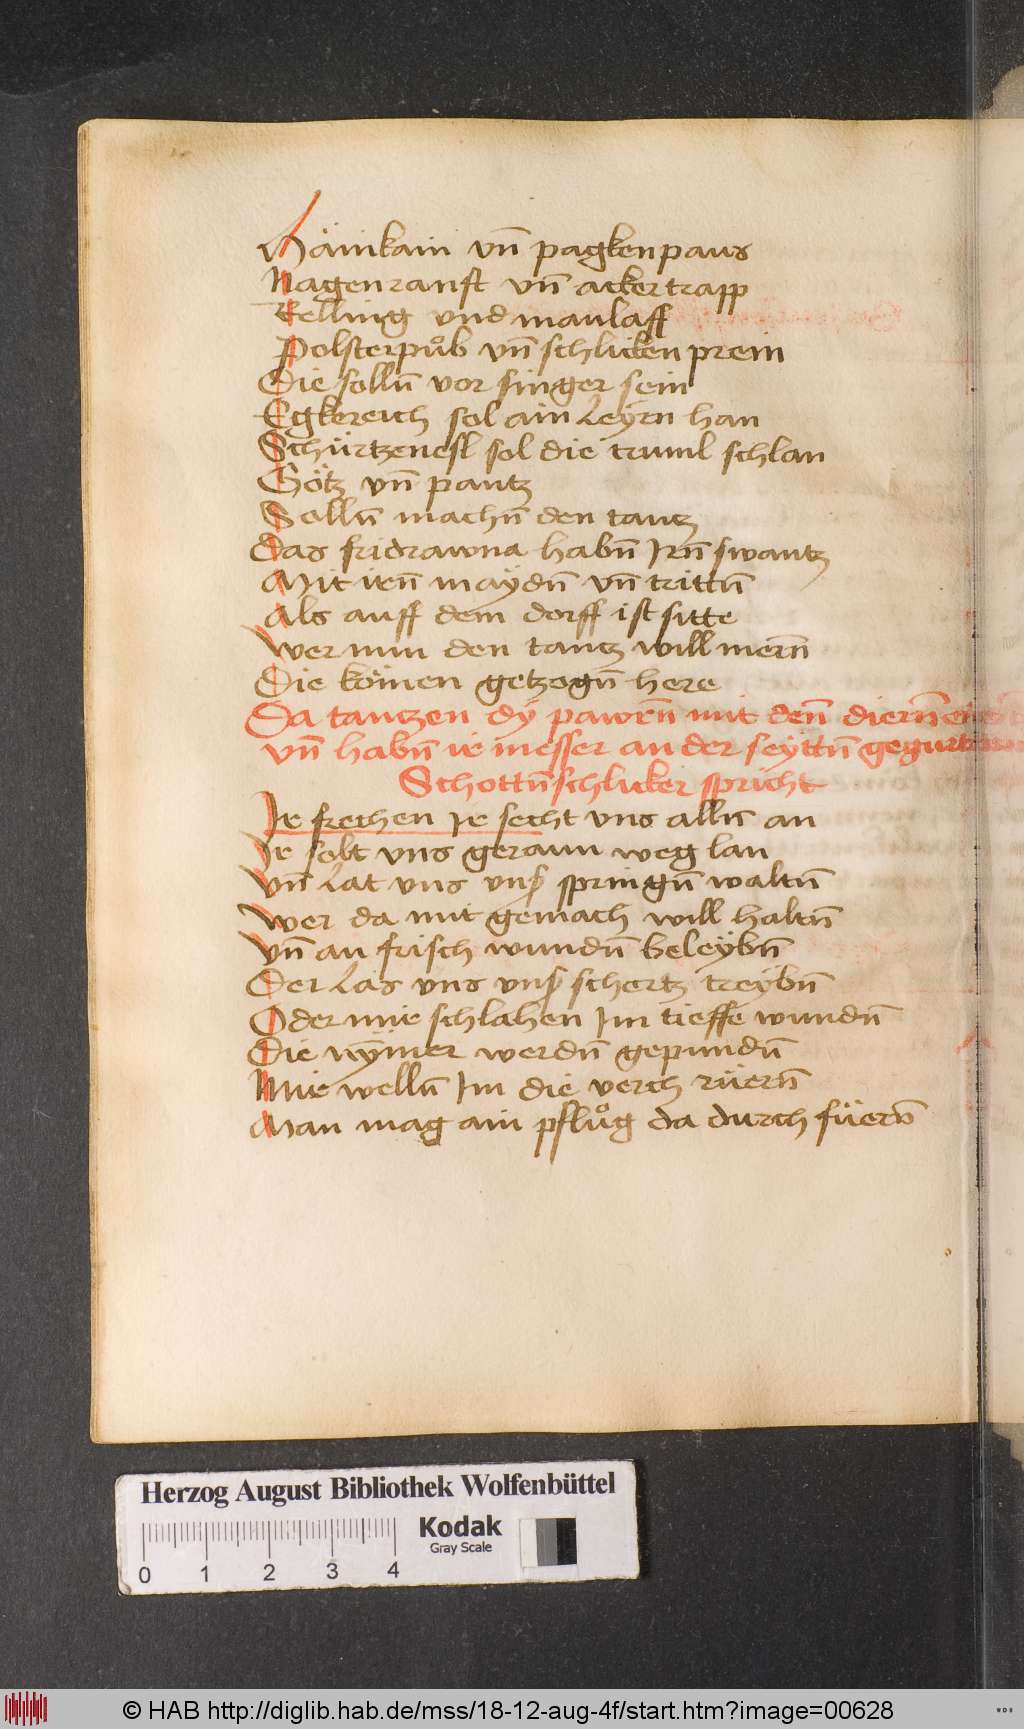 Mänikain vn̄ pagkenpaus
Nagenranft vn̄ ackertrapp
Telling und maulaff
Polsterpůb vn̄ schlicken prein
Die solln̄ vor singer sein
Egkereich sol ain leyrn han
Schürtzenesl sol die truml schlan
Götz vn̄ pantz
Solln̄ machn̄ den tantz
Das fridrawna habn̄ Irn̄ swantz
Mit iren̄ maÿdn̄ vn̄ trittn̄
Als auff dem dorff ist sitte
Wer nun den tantz will mern̄
Die kömen getzogn̄ here
Da tantzen dÿ pawrn̄ mit den̄ diernen̄
vn̄ habn̄ ir messer an der seyttn̄ gegurt
Schottn̄schlicker spricht
Ir frechen Ir secht uns alln̄ an
Ir solt uns geraum weg lan
Vn̄ lat uns unß springn̄ waltn̄
Wer da mit gemach will haltn̄
Vn̄ an frisch wundn̄ beleÿbn̄
Der las uns unß schertz treÿbn̄
Oder mir schlahen Im tieffe wundn̄
Die nÿmer werdn̄ gepundn̄
Mir welln̄ Im die verch rüern̄
Man mag ain pflůg da durch füern̄
Herzog August Bibliothek Wolfenbüttel
Kodak
Gray Scale
0 1 2 3 4
© HAB http://diglib.hab.de/mss/18-12-aug-4f/start.htm?image=00628